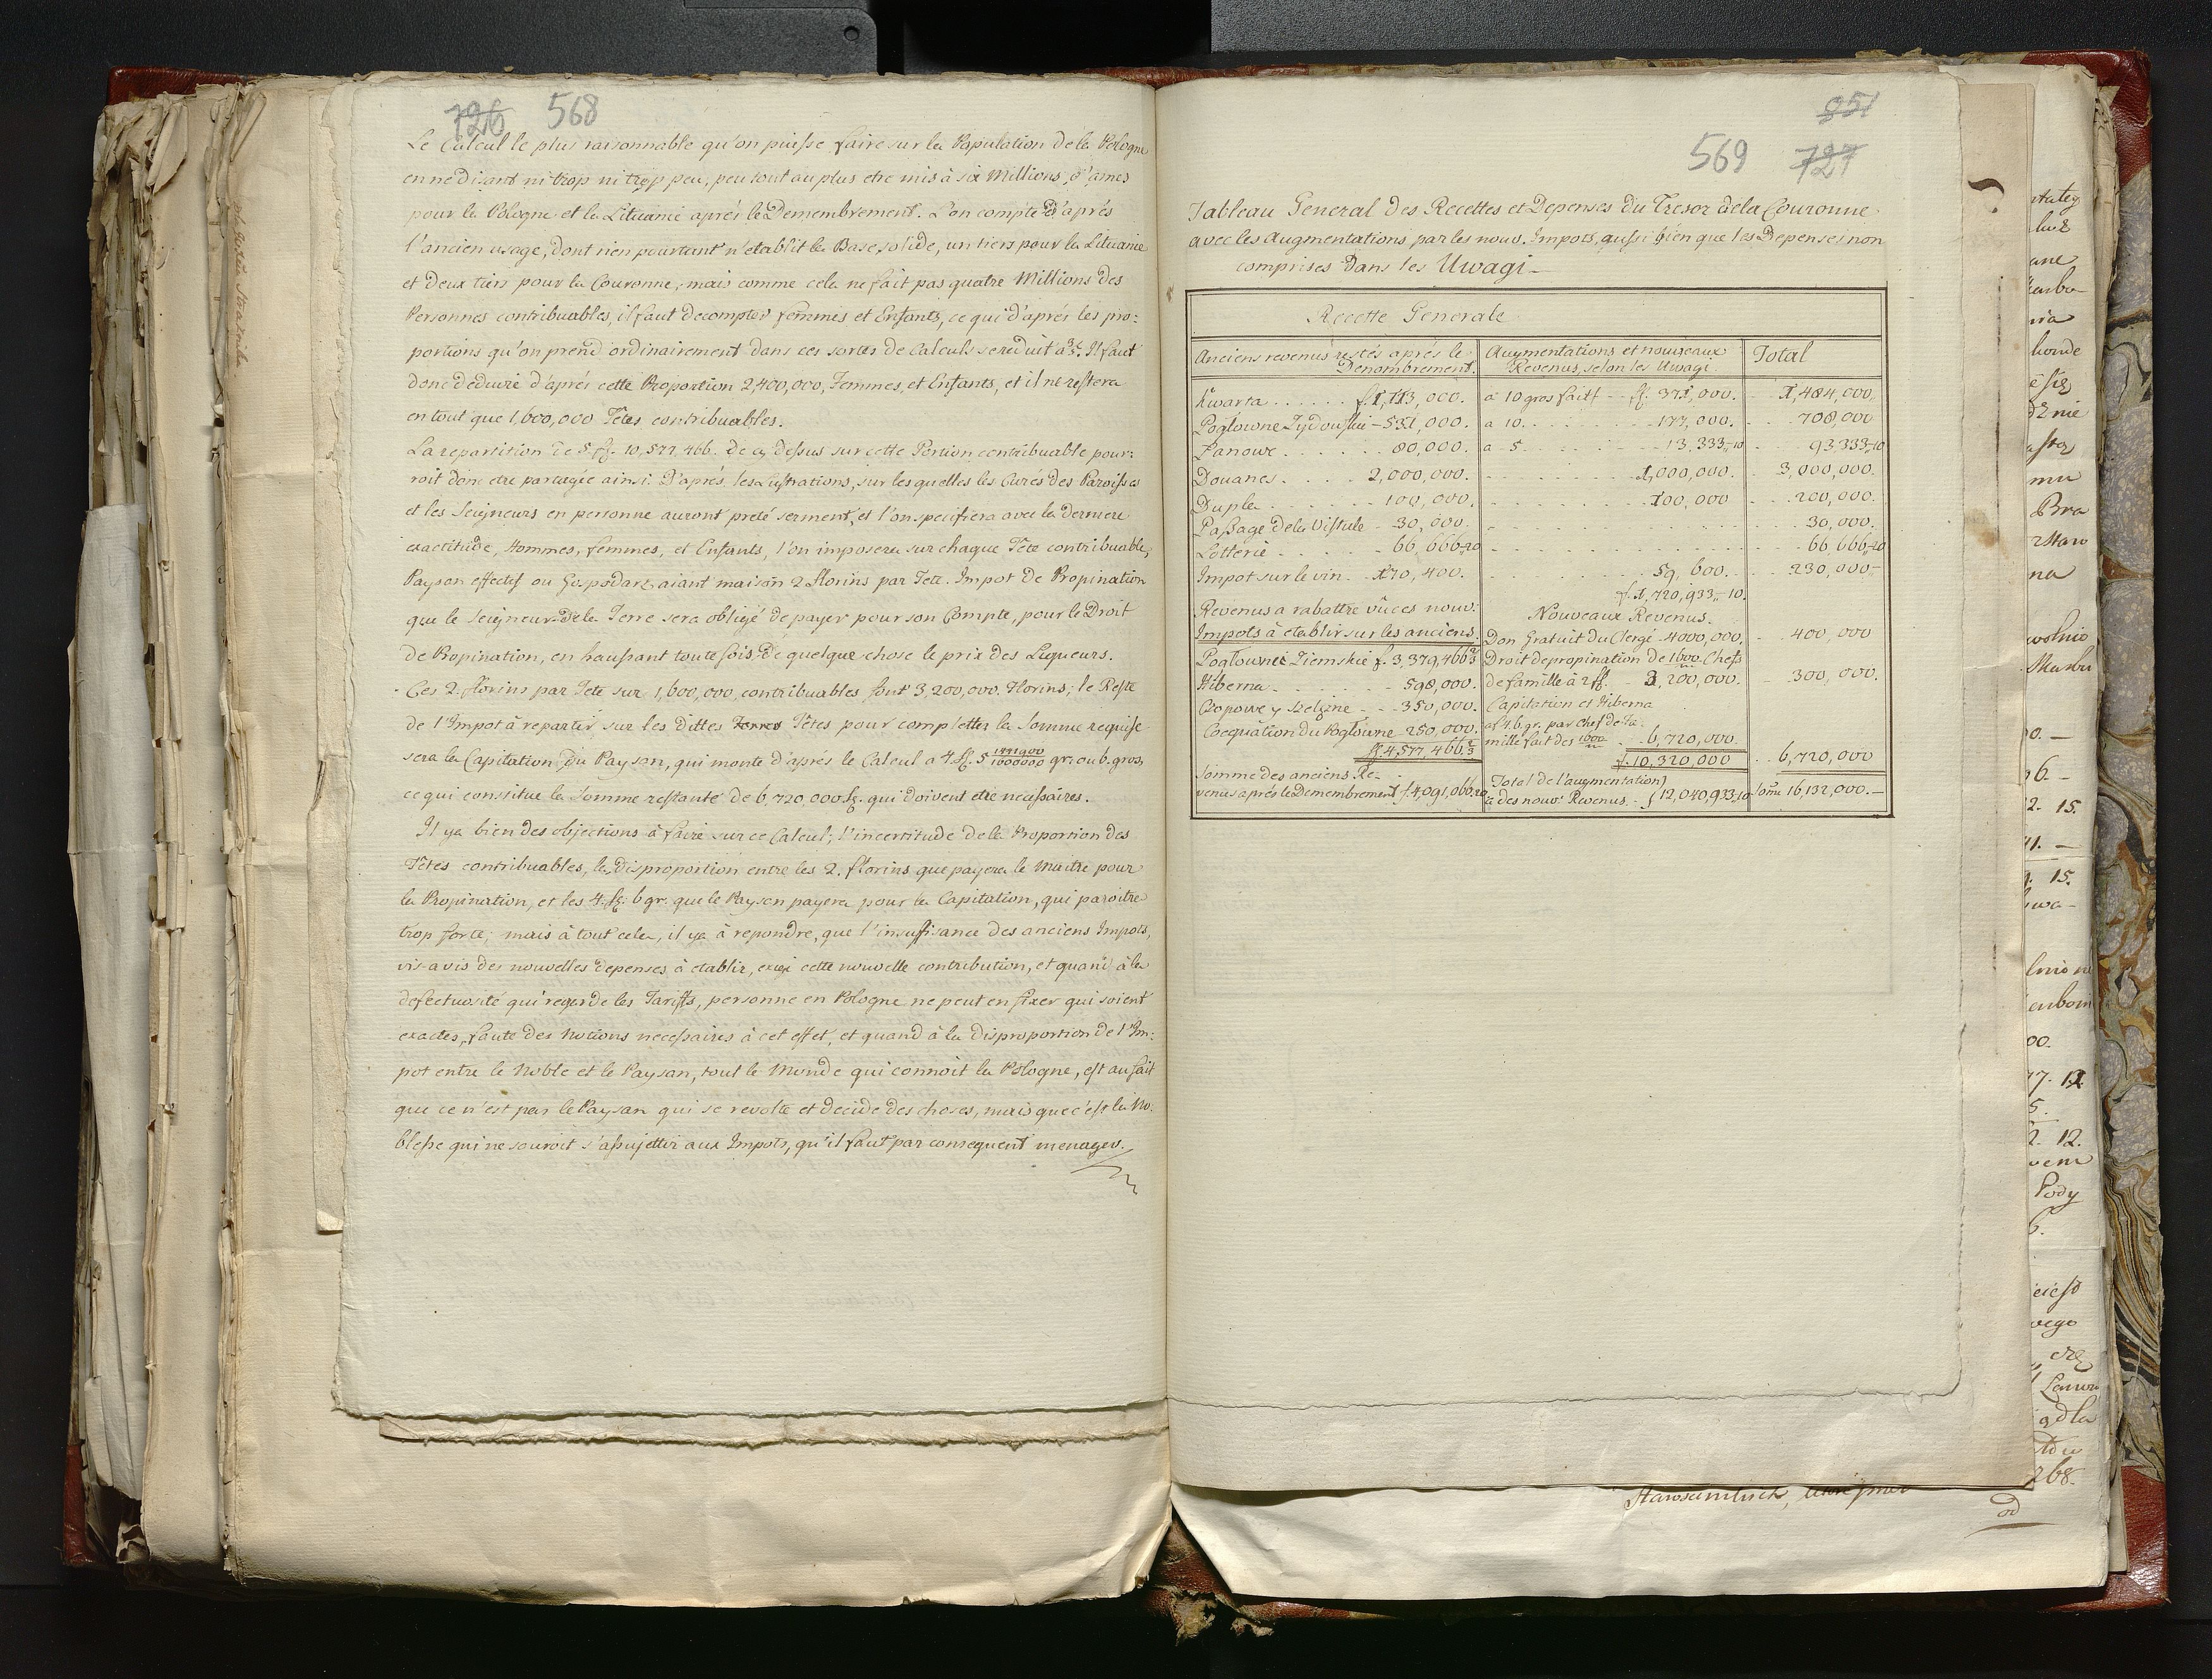 726 568
Le Calcul le plus raisonnable qu'on puisse faire sur la Population de la Pologne
en ne disant ni trop ni trop peu, peu tout au plus etre mis à six Millions, d'ames
pour la Pologne et la Lituanie aprés le Demembrement. L'on compte d'aprés
l'ancien usage, dont rien pourtant n'etablit la Base solide, un tiers pour la Lituanie
et deux tiers pour la Couronne, mais comme cela ne fait pas quatre Millions des
Personnes contribuables, il faut decompter femmes et Enfants, ce qui d'aprés les pro:
portions qu'on prend ordinairement dans ces sortes de Calculs se reduit à 3/5. Il faut
donc deduire d'aprés cette Proportion 2,400,000, Femmes, et Enfants, et il ne restera
en tout que 1,600,000 Têtes contribuables.
La repartition de 5 ff. 10,577,466. de cy dessus sur cette Portion contribuable pour:
roit donc etre partagée ainsi. D'aprés les Lustrations, sur les quelles les Curés des Paroisses
et les Seigneurs en personne auront preté serment, et l'on specifiera avec la derniere
exactitude, Hommes, femmes, et Enfants, l'on imposera sur chaque Tête contribuable,
Paysan effectif ou Gospodarz aiant maison 2 florins par Tete. Impot de Propination
que le Seigneur de la Terre sera obligé de payer pour son Compte, pour le Droit
de Propination, en haussant toute fois de quelque chose le prix des Liqueurs.
Ces 2 florins par Tete sur 1,600,000 contribuables font 3,200,000. Florins; le Reste
de l'Impot à repartir sur les dittes Terres Têtes pour completter la Somme requise
sera la Capitation du Paysan, qui monte d'aprés le Calcul a 4 fl. 5 gr: ou 6. gros,
ce qui constitue la Somme restante de 6,720,000 fl. qui doivent etre necessaires.
Il ya bien des objections à faire sur ce Calcul; l'incertitude de la Proportion des
Têtes contribuables, la disproportion entre les 2. florins que payera le Maitre pour
la Propination, et les 4. fl: 6 gr. que le Paysan payera pour la Capitation, qui paroitre
trop forte; mais à tout cela, il ya à repondre, que l'insuffisance des anciens Impots,
vis-a vis des nouvelles depenses à etablir, exige cette nouvelle contribution, et quand à la
defectuosité qui regarde les Tariffs, personne en Pologne ne peut en fixer qui soient
exactes, faute des Notions necessaires à cet effet, et quand à la disproportion de l'Im:
pot entre le Noble et le Paysan, tout le Monde qui connoit la Pologne, est au fait
que ce n'est pas le Paysan qui se revolte et decide des choses, mais que c'est la No:
blesse qui ne souroit s'assujettir aux Impots, qu'il faut par consequent menager.
951
569 727
Tableau General des Recettes et Depenses du Tresor de la Couronne
avec les Augmentations par les nouv. Impots, aussi bien que les Depenses non
comprises dans les Uwagi
Recette Generale
Anciens revenus restés aprés le Denombrement. Augmentations et nouveaux Revenus, selon les Uwagi Total
Kwarta . . . . . . f. 1,113,000. a 10 gros fait f. - - ff. 371,000. - 1,484,000.
Poglowne Zydowskie - 531,000. a 10. . . . . . 177,000. - . . 708,000
Lanowe . . . . . . 80,000. a - 5 . . . . . 13,333,-10 - 93,333,-10
Douanes . . . . 2,000,000. - - - - 1,000,000. - 3,000,000.
Dupla . . . . . . 100,000. - - - - 100,000 - . . 200,000.
Passage de la Vistule - 30,000. - - - - 30,000.
Lotterie . . . . . - 66,666,-20 - - - - 66,666,-20
Impot sur le vin - 170,400. - - - - 59,600. - - 230,000-
f. 1,720,933,-10.
Revenus a rabattre vû ces nouv: Nouveaux Revenus.
Impots à etablir sur les anciens. Don Gratuit du Clergé - 4000,000. - - 400,000
Poglownei Ziemskie f. 3,379,466 2/3 Droit de propination de 1600 Chefs
Hiberna . . . . . - 598,000. de famille à 2 ff. - 3,200,000. - 300,000.
Czopowe y Szelęzne - - 350,000. Capitation et Hiberna
Coequation du Poglowne - 250,000. a f. 4. 6. gr. par Chef de fa:
ff. 4,577,466 2/3 mille fait des 1600 - - 6,720,000.
f. 10,320,000 . . 6,720,000
Somme des anciens Re-
venus aprés le Demembrement f. 4,091,066.20 Total de l'augmentation
a des nouv: Revenus - f 12,040,933,-10 Some 16,132,000.-